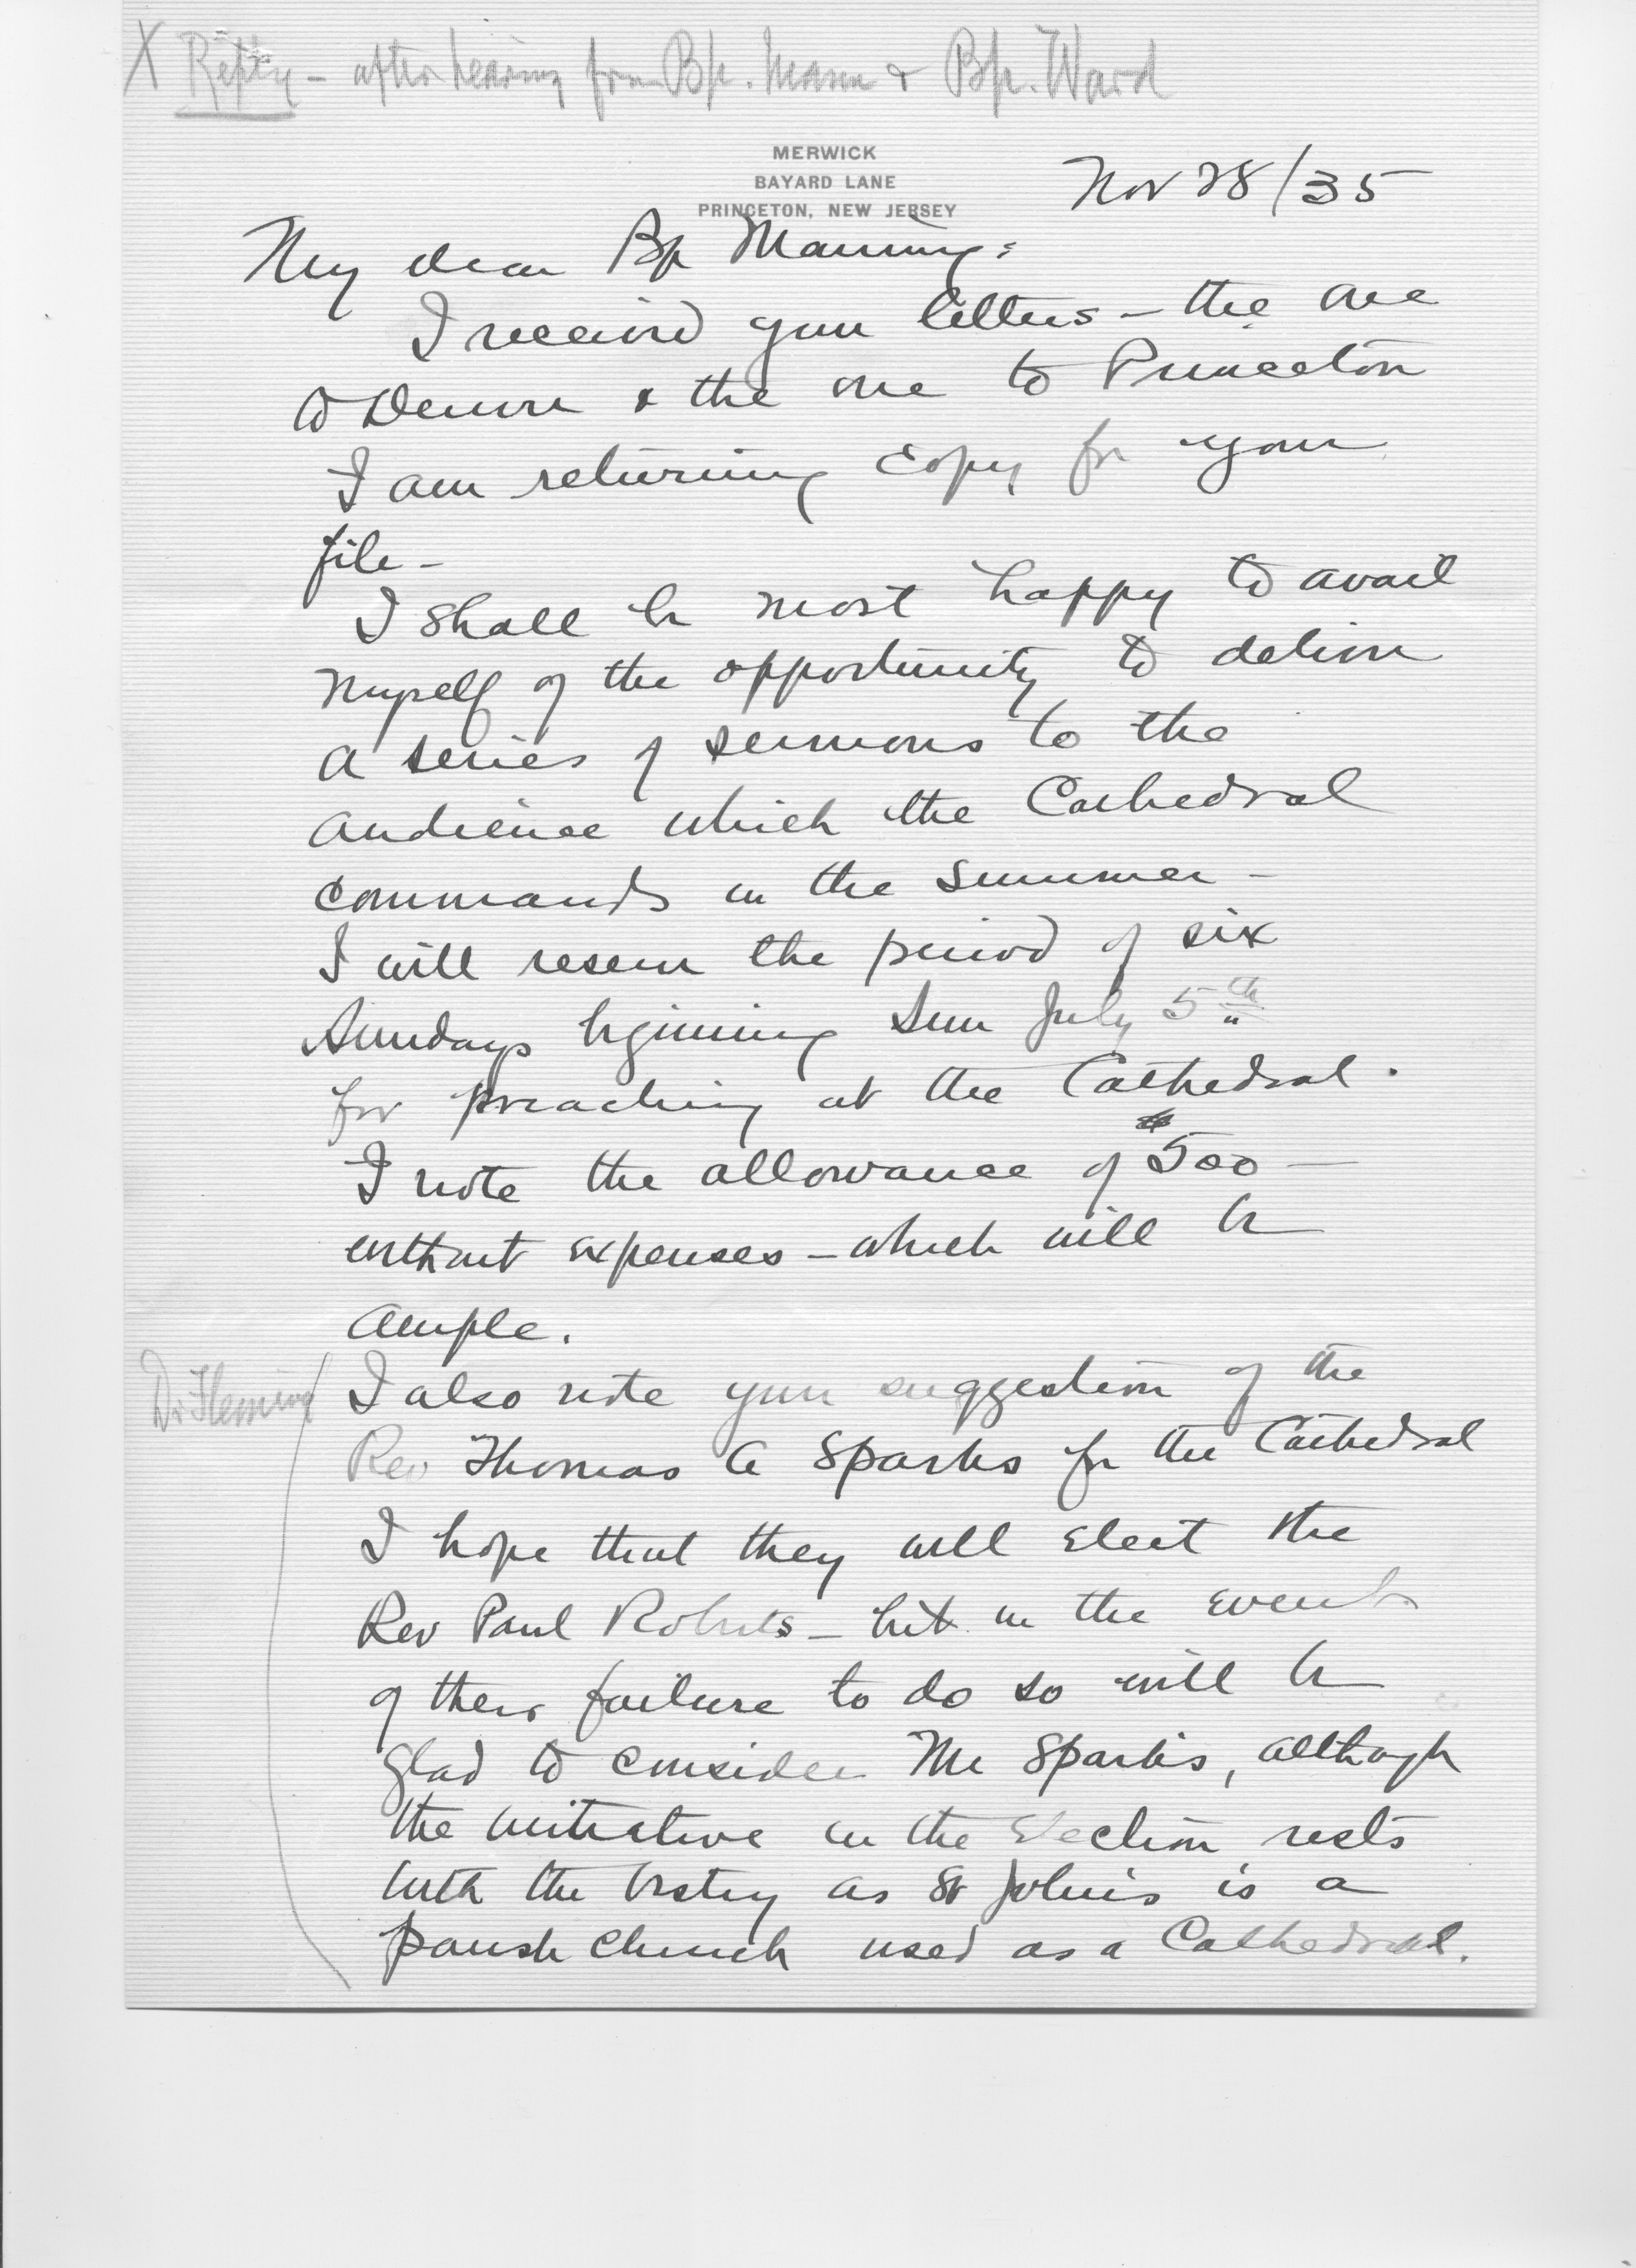 X Reply - after hearing from Bp. Mann & Bp. Ward
MERWICK
BAYARD LANE
PRINCETON, NEW JERSEY
Nov 28/35
My dear Bp Manning:
I received your letters - the one
to Denver & the one to Princeton
I am returning copy for your
file -
I shall be most happy to avail
myself of the opportunity to deliver
a series of sermons to the
audience which the Cathedral
commands in the summer -
I will reserve the period of six
Sundays beginning Sun July 5th
for preaching at the Cathedral.
I note the allowance of $500 -
without expenses - which will be
ample.
Dr Fleming
I also note your suggestion of the
Rev Thomas A Sparks for the Cathedral
I hope that they will elect the
Rev Paul Roberts - but in the event
of their failure to do so will be
glad to consider Mr Sparks, although
the initiative in the election rests
with the Vestry as St John's is a
parish church used as a Cathedral.